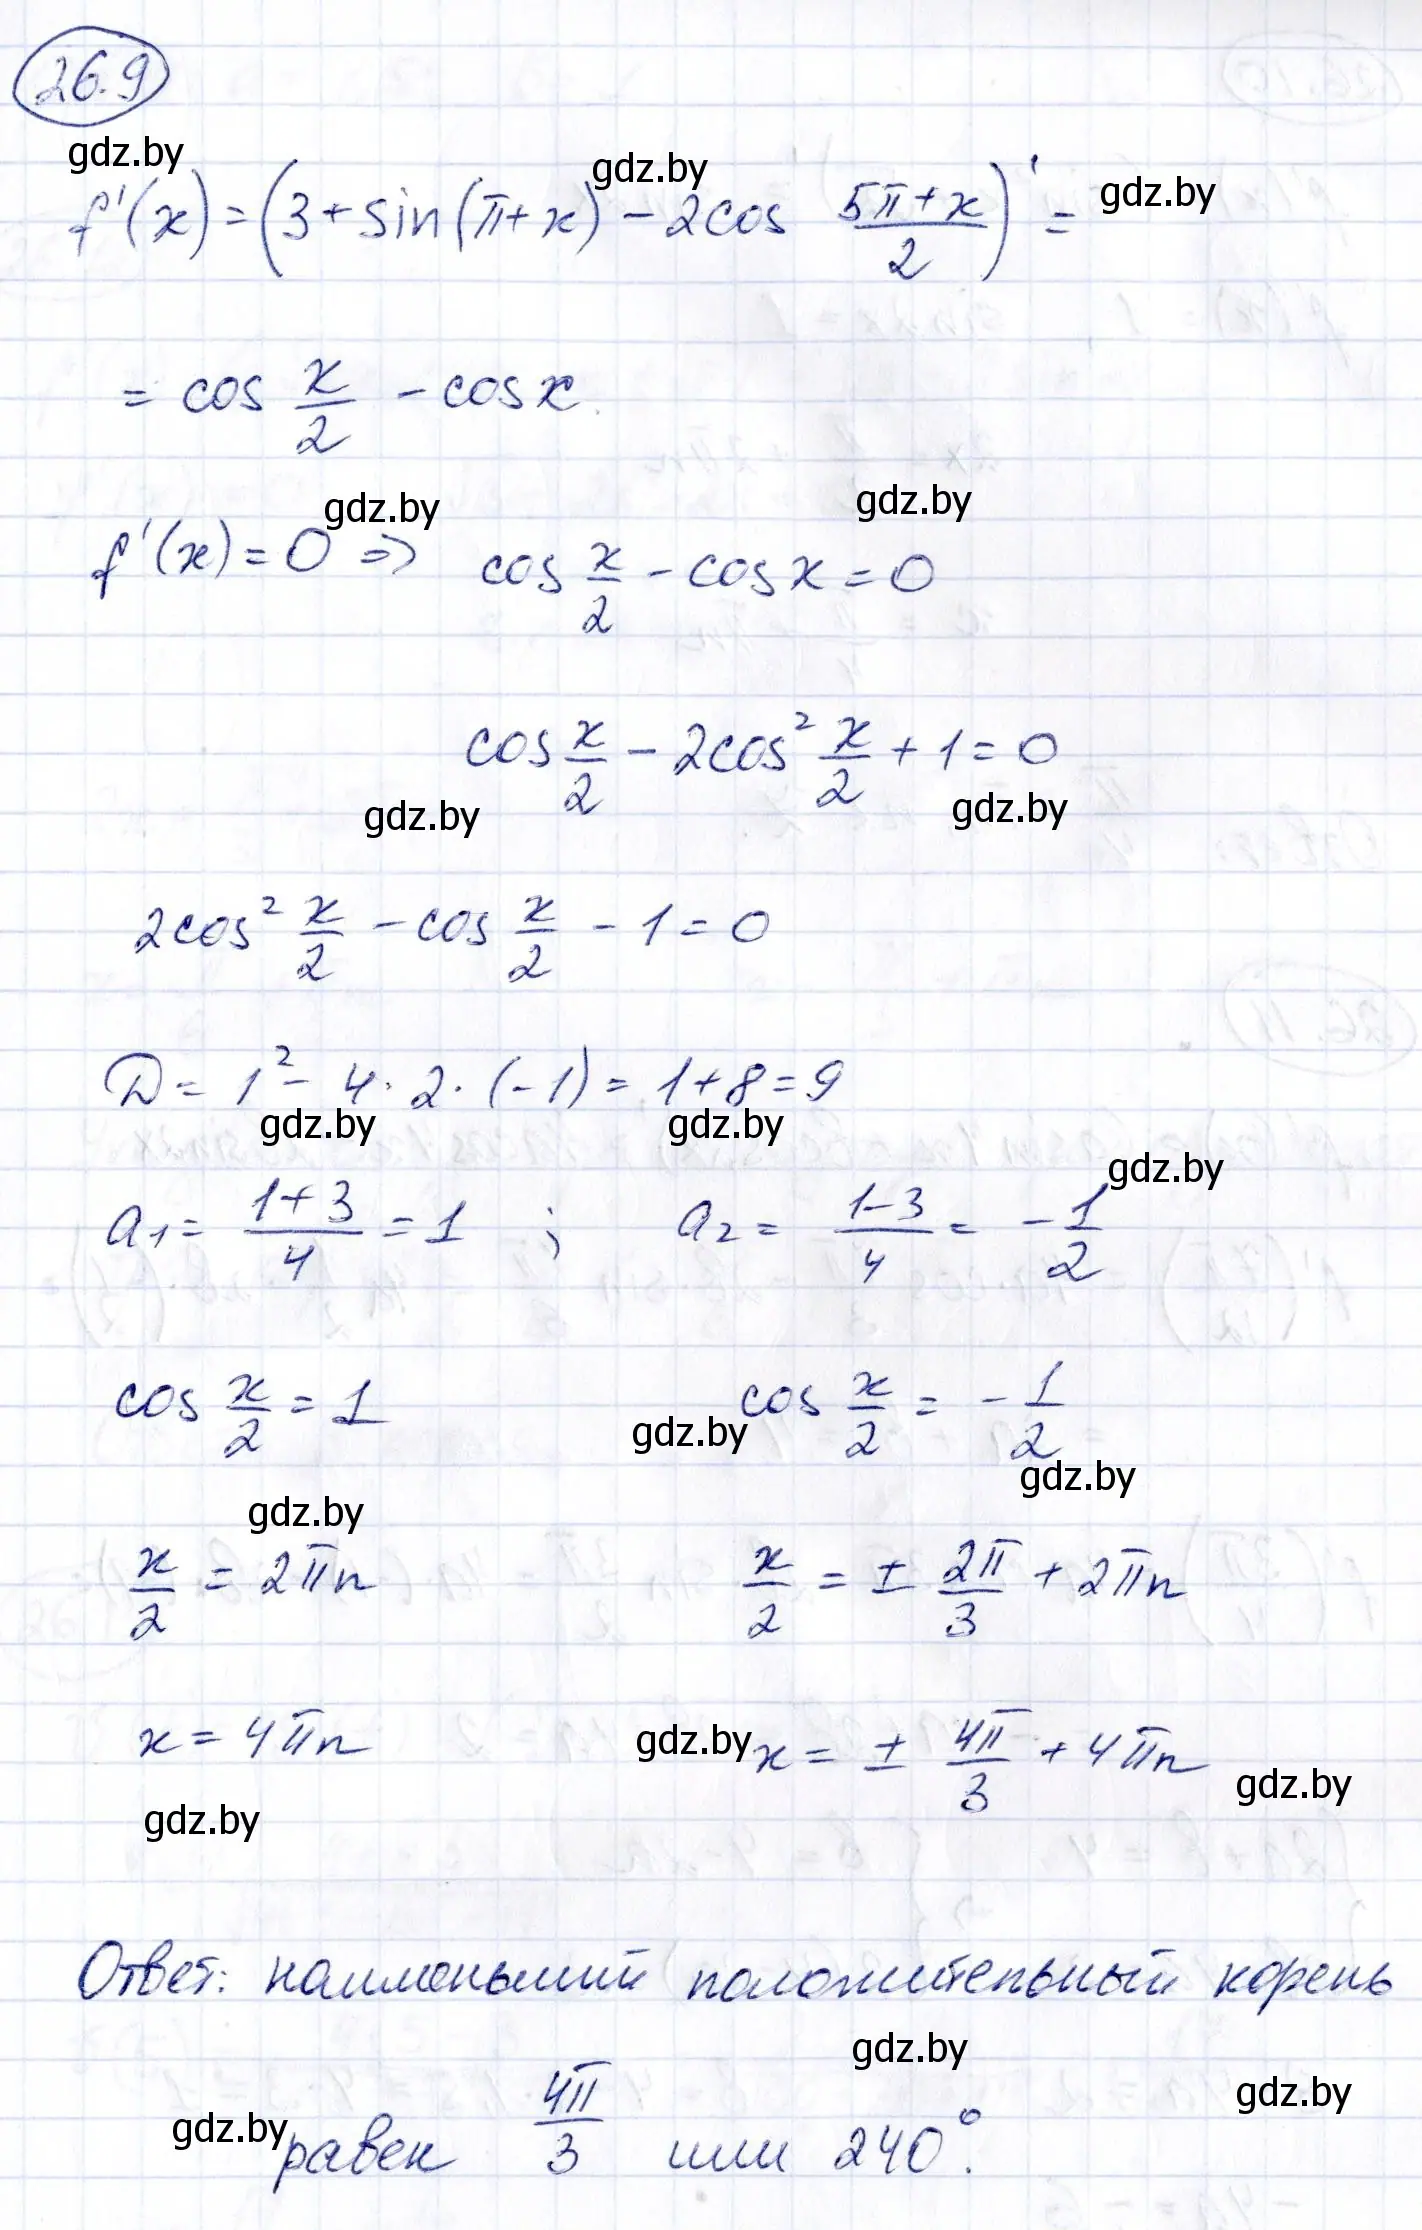 26.9
gdz.by gdz.by gdz.by
f'(x) = (3 + sin(π + x) - 2cos (5π + x)/2)' =
= cos x/2 - cos x.
gdz.by gdz.by
f'(x) = 0 => cos x/2 - cos x = 0
cos x/2 - 2cos² x/2 + 1 = 0
gdz.by gdz.by
2cos² x/2 - cos x/2 - 1 = 0
D = 1² - 4 · 2 · (-1) = 1 + 8 = 9
gdz.by gdz.by gdz.by
a₁ = (1 + 3)/4 = 1 ; a₂ = (1 - 3)/4 = -1/2
cos x/2 = 1 cos x/2 = -1/2
gdz.by gdz.by
gdz.by
x/2 = 2πn x/2 = ± 2π/3 + 2πn
x = 4πn gdz.by x = ± 4π/3 + 4πn
gdz.by gdz.by
Ответ: наименьший положительный корень
gdz.by gdz.by
gdz.by равен 4π/3 или 240°.